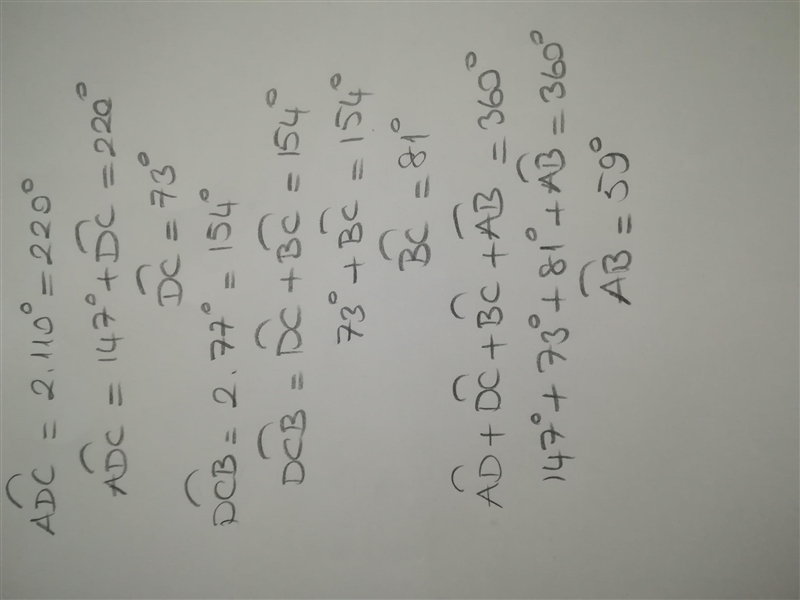 A͡DC = 2.110° = 220°
A͡DC = 147° + D͡C = 220°
D͡C = 73°
D͡CB = 2.77° = 154°
D͡CB = D͡C + B͡C = 154°
73° + B͡C = 154°
B͡C = 81°
A͡D + D͡C + B͡C + A͡B = 360°
147° + 73° + 81° + A͡B = 360°
A͡B = 59°